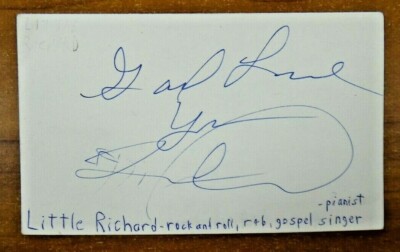 God Love
You
- pianist
Little Richard - rock and roll, r+b, gospel singer